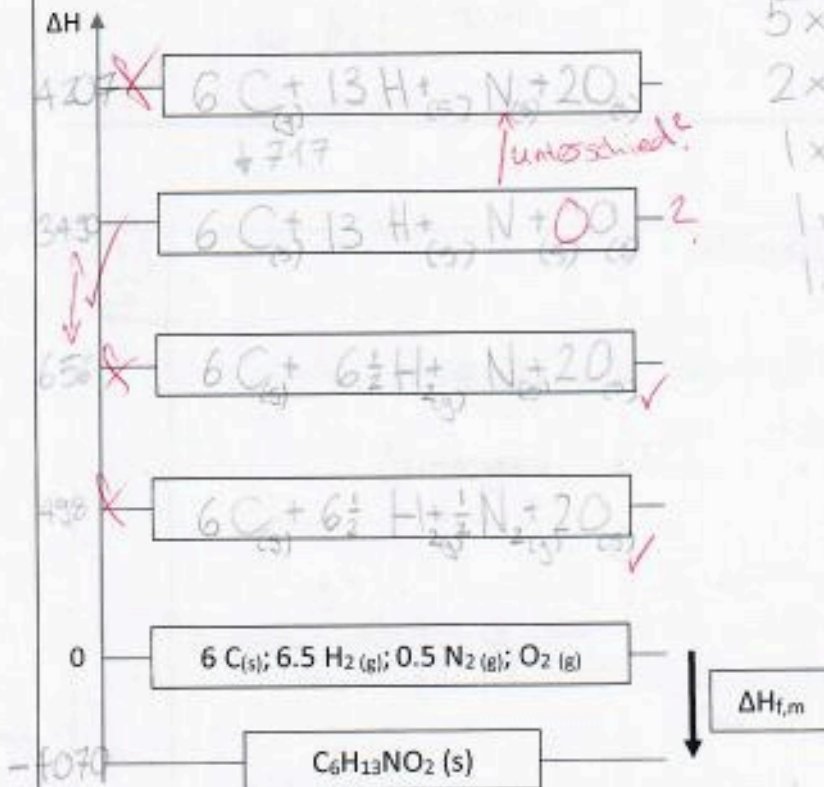 ΔH
5 ×
4207 6 C(g) + 13 H + (g) N(g) + 2O(g)
2 ×
+ 717
unterschied?
1 ×
6 C(s) + 13 H + (g) N + O O ?
1
1
656 6 C(s) + 6 1/2 H2(g) + N(g) + 2O ✓
498 6 C(s) + 6 1/2 H2(g) + 1/2 N2(g) + 2O(g) ✓
0 6 C(s); 6.5 H2 (g); 0.5 N2 (g); O2 (g)
ΔHf,m
-1070 C6H13NO2 (s)